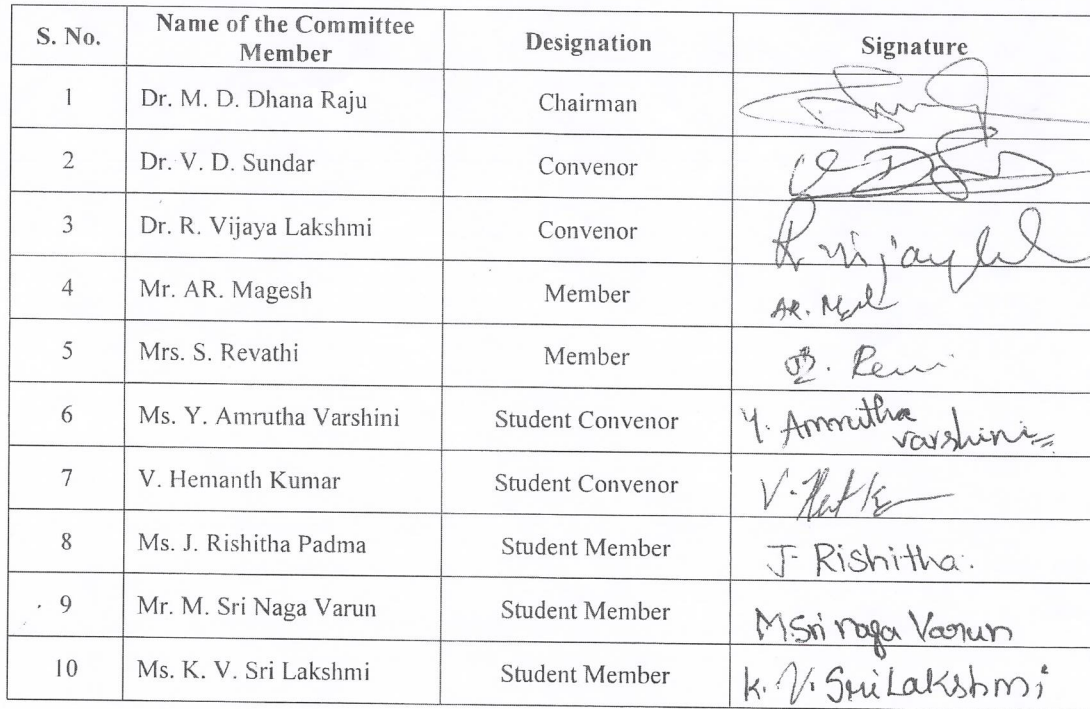 S. No. Name of the Committee Member Designation Signature
1 Dr. M. D. Dhana Raju Chairman
2 Dr. V. D. Sundar Convenor
3 Dr. R. Vijaya Lakshmi Convenor R. Vijaya
4 Mr. AR. Magesh Member AR.
5 Mrs. S. Revathi Member
6 Ms. Y. Amrutha Varshini Student Convenor Y. Amrutha varshini
7 V. Hemanth Kumar Student Convenor V.
8 Ms. J. Rishitha Padma Student Member J. Rishitha.
9 Mr. M. Sri Naga Varun Student Member M Sri naga Varun
10 Ms. K. V. Sri Lakshmi Student Member K. V. Sri Lakshmi